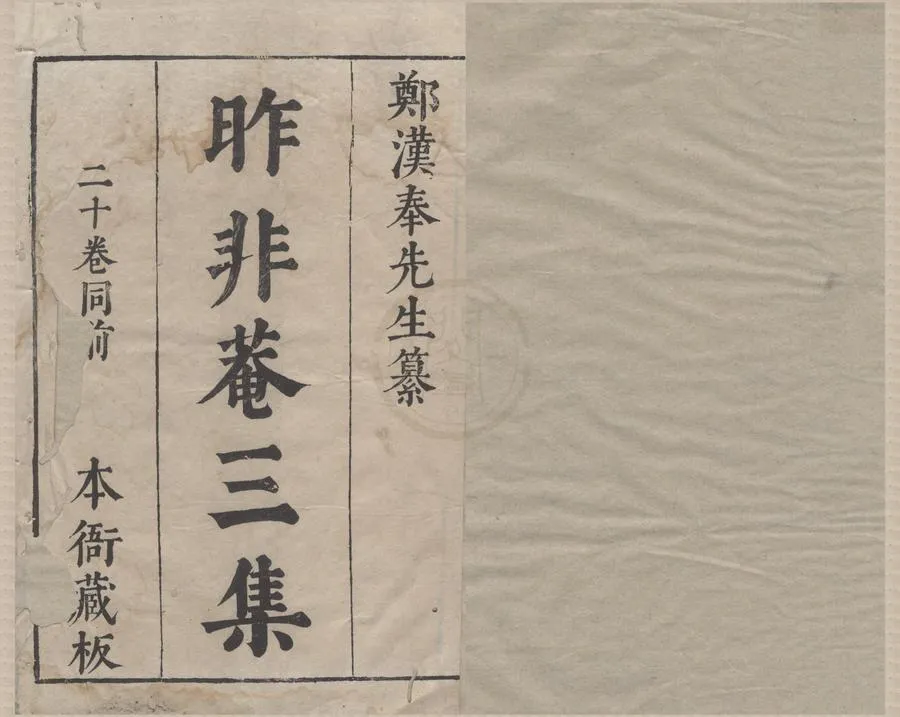 鄭漢奉先生纂
昨非菴三集
二十卷同前
本衙藏板